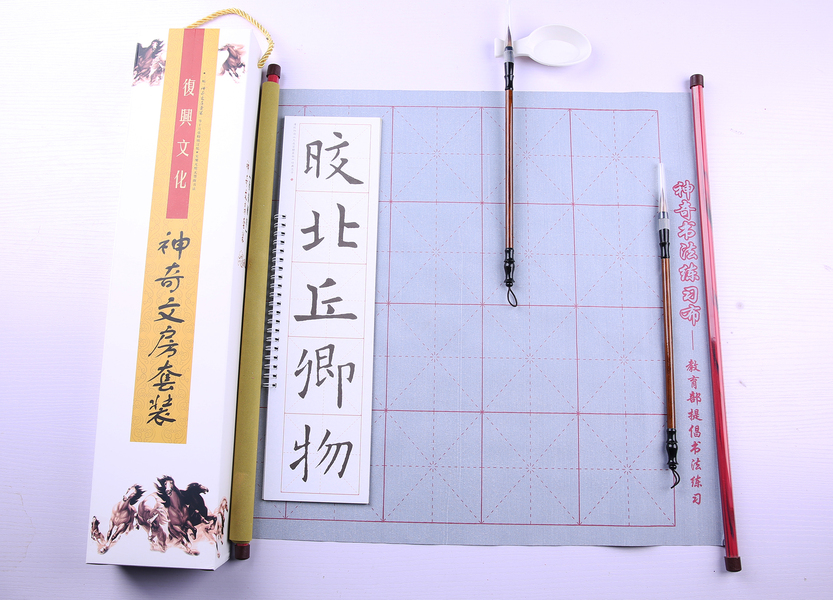 復興文化
神奇文房套装
晈
北
丘
卿
物
神奇书法练习布——教育部提倡书法练习